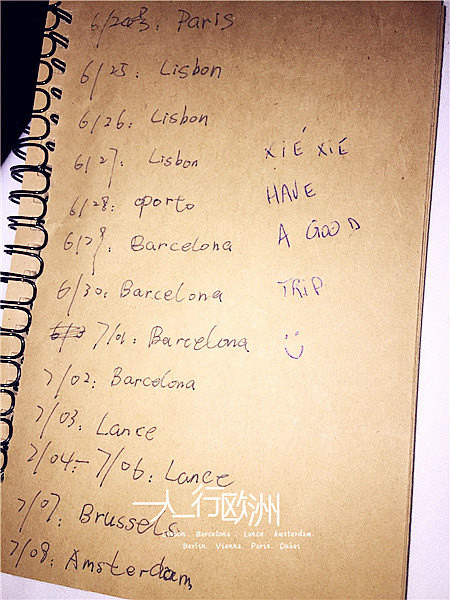 Paris
6/25: Lisbon
6/26: Lisbon
6/27: Lisbon
6/28: oporto
6/29: Barcelona
6/30: Barcelona
7/01: Barcelona
7/02: Barcelona
7/03: Lance
7/04-7/06: Lance
7/07: Brussels
7/08: Amsterdam
XIÉ XIÉ
HAVE
A GOOD
TRIP
一人行欧洲
Lisbon . Barcelona . Lance . Amsterdam.
Berlin. Vienna. Paris. Calais